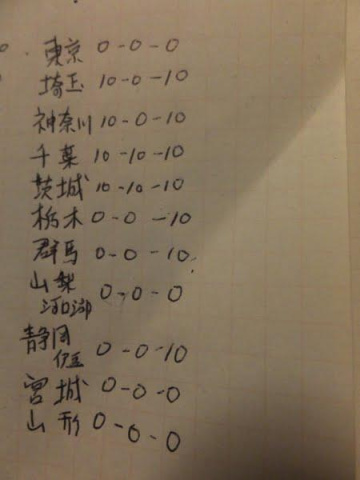 東京 0-0-0
埼玉 10-0-10
神奈川 10-0-10
千葉 10-10-10
茨城 10-10-10
栃木 0-0-10
群馬 0-0-10
山梨
河口湖 0-0-0
静岡
伊豆 0-0-10
宮城 0-0-0
山形 0-0-0